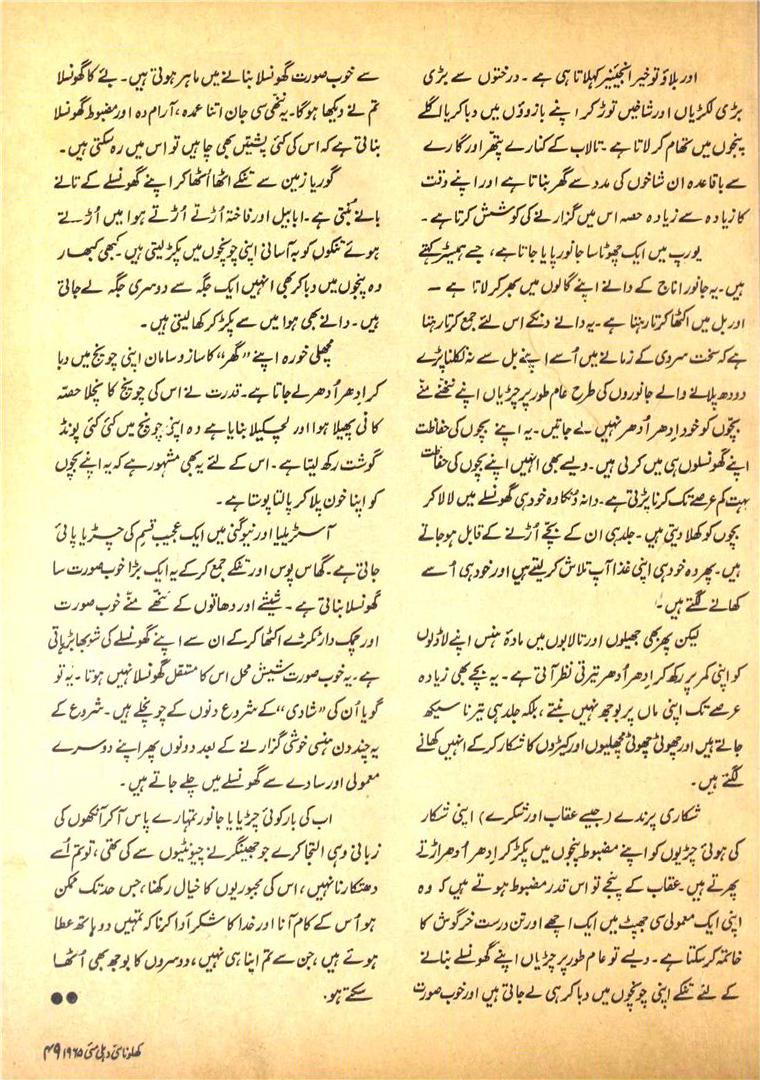 اور بلاؤ تو خیر انجینیئر کہلاتا ہی ہے ۔ درختوں سے بڑی
بڑی لکڑیاں اور شاخیں توڑ کر اپنے بازوؤں میں دبا کر یا اگلے
پنجوں میں تھام کر لاتا ہے ۔ تالاب کے کنارے پتھر اور گارے
سے باقاعدہ ان شاخوں کی مدد سے گھر بناتا ہے اور اپنے وقت
کا زیادہ سے زیادہ حصہ اس میں گزارنے کی کوشش کرتا ہے ۔
یورپ میں ایک چھوٹا سا جانور پایا جاتا ہے ، جسے ہمیسٹر کہتے
ہیں ۔ یہ جانور اناج کے دانے اپنے گالوں میں بھر کر لاتا ہے ۔
اور بل میں اکٹھا کرتا رہتا ہے ۔ یہ دانے دنکے اس لئے جمع کرتا رہتا
ہے کہ سخت سردی کے زمانے میں اُسے اپنے بل سے نہ نکلنا پڑے
دودھ پلانے والے جانوروں کی طرح عام طور پر چڑیاں اپنے ننھے منے
بچوں کو خود اِدھر اُدھر نہیں لے جاتیں ۔ یہ اپنے بچوں کی حفاظت
اپنے گھونسلوں ہی میں کرتی ہیں ۔ ویسے بھی انہیں اپنے بچوں کی حفاظت
بہت کم عرصے تک کرنا پڑتی ہے ۔ دانہ دُنکا وہ خود ہی گھونسلے میں لا لا کر
بچوں کو کھلا دیتی ہیں ۔ جلد ہی ان کے بچے اُڑنے کے قابل ہو جاتے
ہیں ۔ پھر وہ خود ہی اپنی غذا آپ تلاش کر لیتے ہیں اور خود ہی اُسے
کھانے لگتے ہیں ۔
لیکن پھر بھی جھیلوں اور تالابوں میں مادہ ہنس اپنے لاڈلوں
کو اپنی کمر پر رکھ کر اِدھر اُدھر تیرتی نظر آتی ہے ۔ یہ بچے بھی زیادہ
عرصے تک اپنی ماں پر بوجھ نہیں بنتے ، بلکہ جلد ہی تیرنا سیکھ
جاتے ہیں اور چھوٹی چھوٹی مچھلیوں اور کیڑوں کا شکار کر کے انہیں کھانے
لگتے ہیں ۔
شکاری پرندے (جیسے عقاب اور شکرے) اپنی شکار
کی ہوئی چڑیوں کو اپنے مضبوط پنجوں میں پکڑ کر اِدھر اُدھر اڑتے
پھرتے ہیں ۔ عقاب کے پنجے تو اس قدر مضبوط ہوتے ہیں کہ وہ
اپنی ایک معمولی سی جھپٹ میں ایک اچھے اور تن درست خرگوش کا
خاتمہ کر سکتا ہے ۔ ویسے تو عام طور پر چڑیاں اپنے گھونسلے بنانے
کے لئے تنکے اپنی چونچوں میں دبا کر ہی لے جاتی ہیں اور خوب صورت
سے خوب صورت گھونسلا بنانے میں ماہر ہوتی ہیں ۔ بئے کا گھونسلا
تم نے دیکھا ہوگا ۔ یہ ننھی سی جان اتنا عمدہ ، آرام دہ اور مضبوط گھونسلا
بناتی ہے کہ اس کی کئی پشتیں بھی چاہیں تو اس میں رہ سکتی ہیں ۔
گوریا زمین سے تنکے اٹھا اُٹھا کر اپنے گھونسلے کے تانے
بانے بُنتی ہے ۔ ابابیل اور فاختہ اُڑتے اُڑتے ہوا میں اُڑتے
ہوئے تنکوں کو بہ آسانی اپنی چونچوں میں پکڑ لیتی ہیں ۔ کبھی کبھار
وہ پنجوں میں دبا کر بھی انہیں ایک جگہ سے دوسری جگہ لے جاتی
ہیں ۔ دانے بھی ہوا میں سے پکڑ کر کھا لیتی ہیں ۔
مچھلی خورہ اپنے ”گھر“ کا ساز و سامان اپنی چونچ میں دبا
کر اِدھر اُدھر لے جاتا ہے ۔ قدرت نے اس کی چونچ کا نچلا حصّہ
کافی پھیلا ہوا اور لچکیلا بنایا ہے وہ اپنی چونچ میں کئی کئی پونڈ
گوشت رکھ لیتا ہے ۔ اس کے لئے یہ بھی مشہور ہے کہ یہ اپنے بچوں
کو اپنا خون پلا کر پالتا پوستا ہے ۔
آسٹریلیا اور نیو گنی میں ایک عجیب قسم کی چڑیا پائی
جاتی ہے ۔ گھاس پوس اور تنکے جمع کر کے یہ ایک بڑا خوب صورت سا
گھونسلا بناتی ہے ۔ شیشے اور دھاتوں کے ننھے منے خوب صورت
اور چمک دار ٹکڑے اکٹھا کر کے ان سے اپنے گھونسلے کی شوبھا بڑھاتی
ہے ۔ یہ خوب صورت شیش محل اس کا مستقل گھونسلا نہیں ہوتا ۔ یہ تو
گویا اُن کی ”شادی“ کے شروع دنوں کے چونچلے ہیں ۔ شروع کے
یہ چند دن ہنسی خوشی گزارنے کے بعد دونوں پھر اپنے دوسرے
معمولی اور سادے سے گھونسلے میں چلے جاتے ہیں ۔
اب کی بار کوئی چڑیا یا جانور تمہارے پاس آ کر آنکھوں کی
زبانی وہی التجا کرے جو جھینگر نے چیونٹیوں سے کی تھی ، تو تم اُسے
دھتکارنا نہیں ، اس کی مجبوریوں کا خیال رکھنا ، جس حد تک ممکن
ہو اُس کے کام آنا اور خدا کا شکر ادا کرنا کہ تمہیں دو ہاتھ عطا
ہوئے ہیں ، جن سے تم اپنا ہی نہیں ، دوسروں کا بوجھ بھی اُٹھا
سکتے ہو ۔
کھلونا نئی دہلی مئی ۱۹۶۵ ۴۹